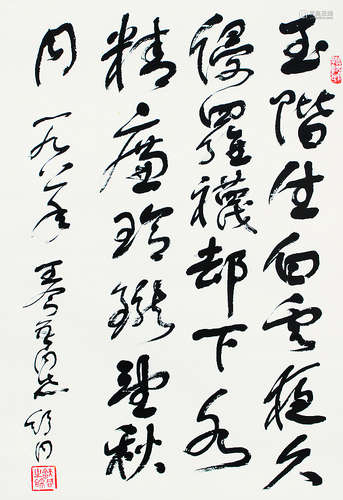 玉階生白露夜久
侵羅襪却下水
精廉玲瓏望秋
月 一九八年 王同志 舒同